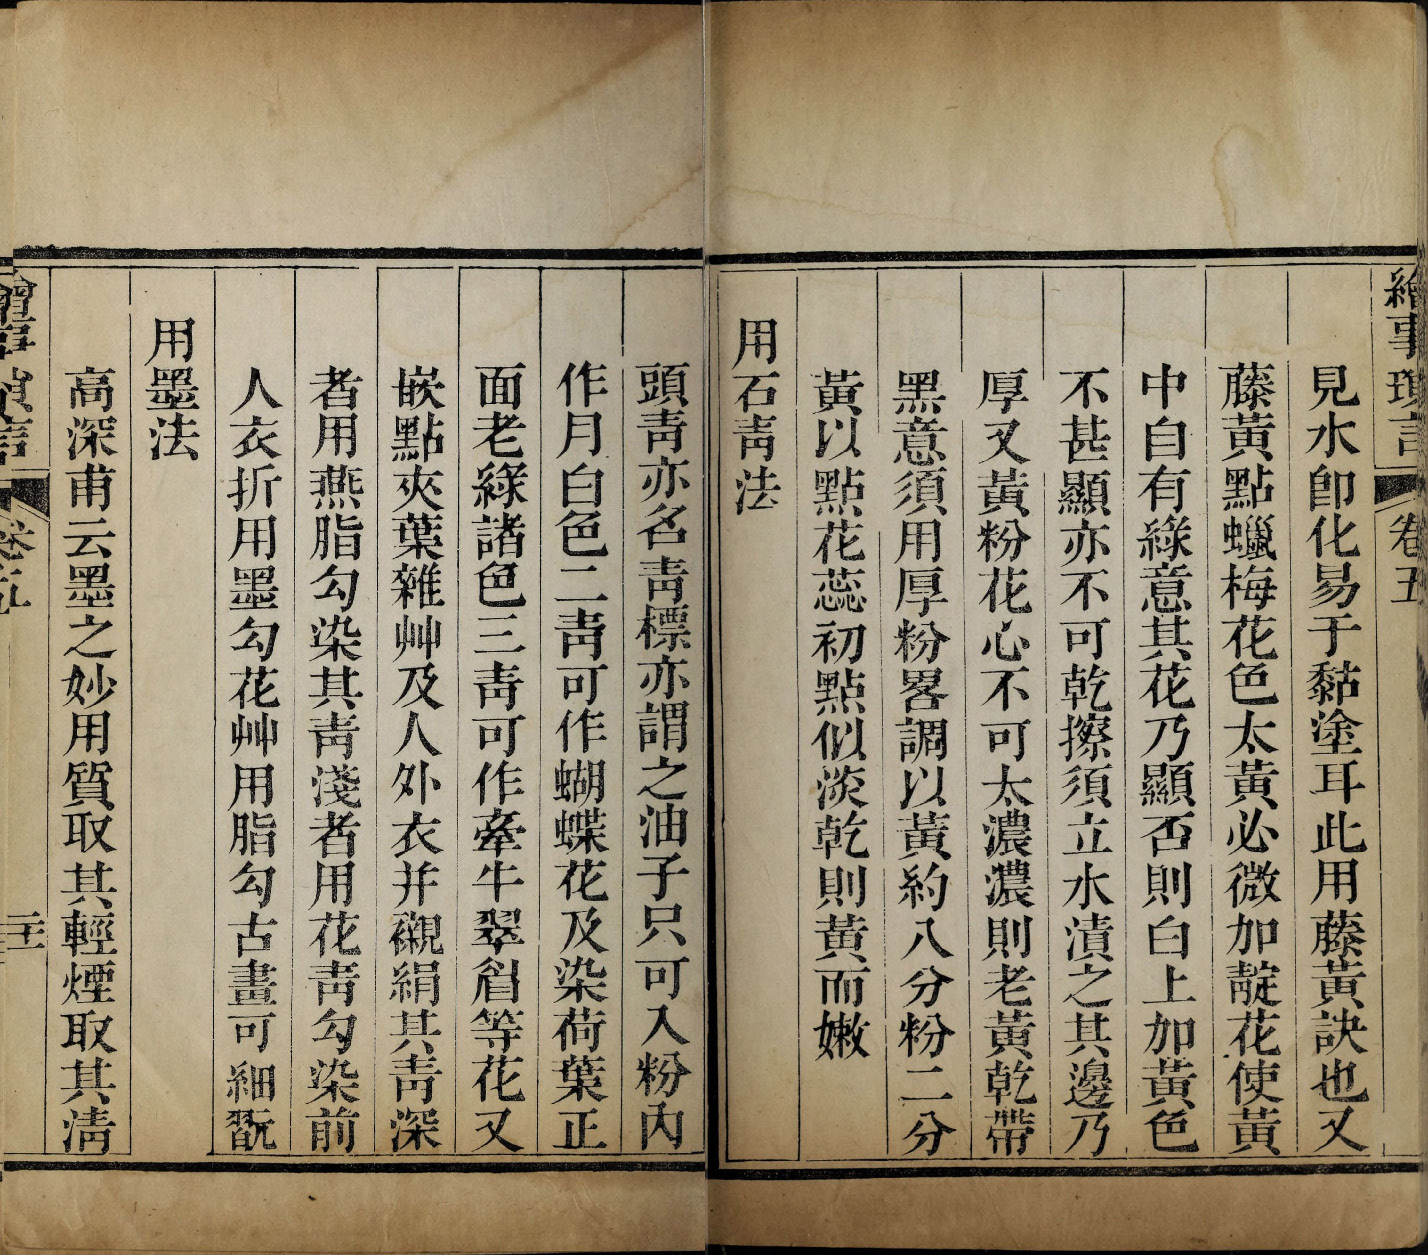 繪事瑣言 卷五
見水卽化易于黏塗耳此用藤黃訣也又
藤黃點蠟梅花色太黃必微加靛花使黃
中自有綠意其花乃顯否則白上加黃色
不甚顯亦不可乾擦須立水漬之其邊乃
厚又黃粉花心不可太濃濃則老黃乾帶
黑意須用厚粉畧調以黃約八分粉二分
黃以點花蕊初點似淡乾則黃而嫩
用石靑法
頭靑亦名靑標亦謂之油子只可入粉內
作月白色二靑可作蝴蝶花及染荷葉正
面老綠諸色三靑可作牽牛翠眉等花又
嵌點夾葉雜艸及人外衣并襯絹其靑深
者用燕脂勾染其靑淺者用花靑勾染前
人衣折用墨勾花艸用脂勾古畫可細翫
用墨法
高深甫云墨之妙用質取其輕煙取其淸
繪事瑣言 卷五 二十